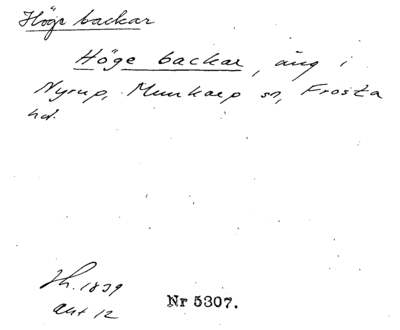 Höge backar
Höge backar, äng i
Nyrup, Munkarp sn, Frosta
hd.
Sk. 1839
akt 12
Nr 5307.